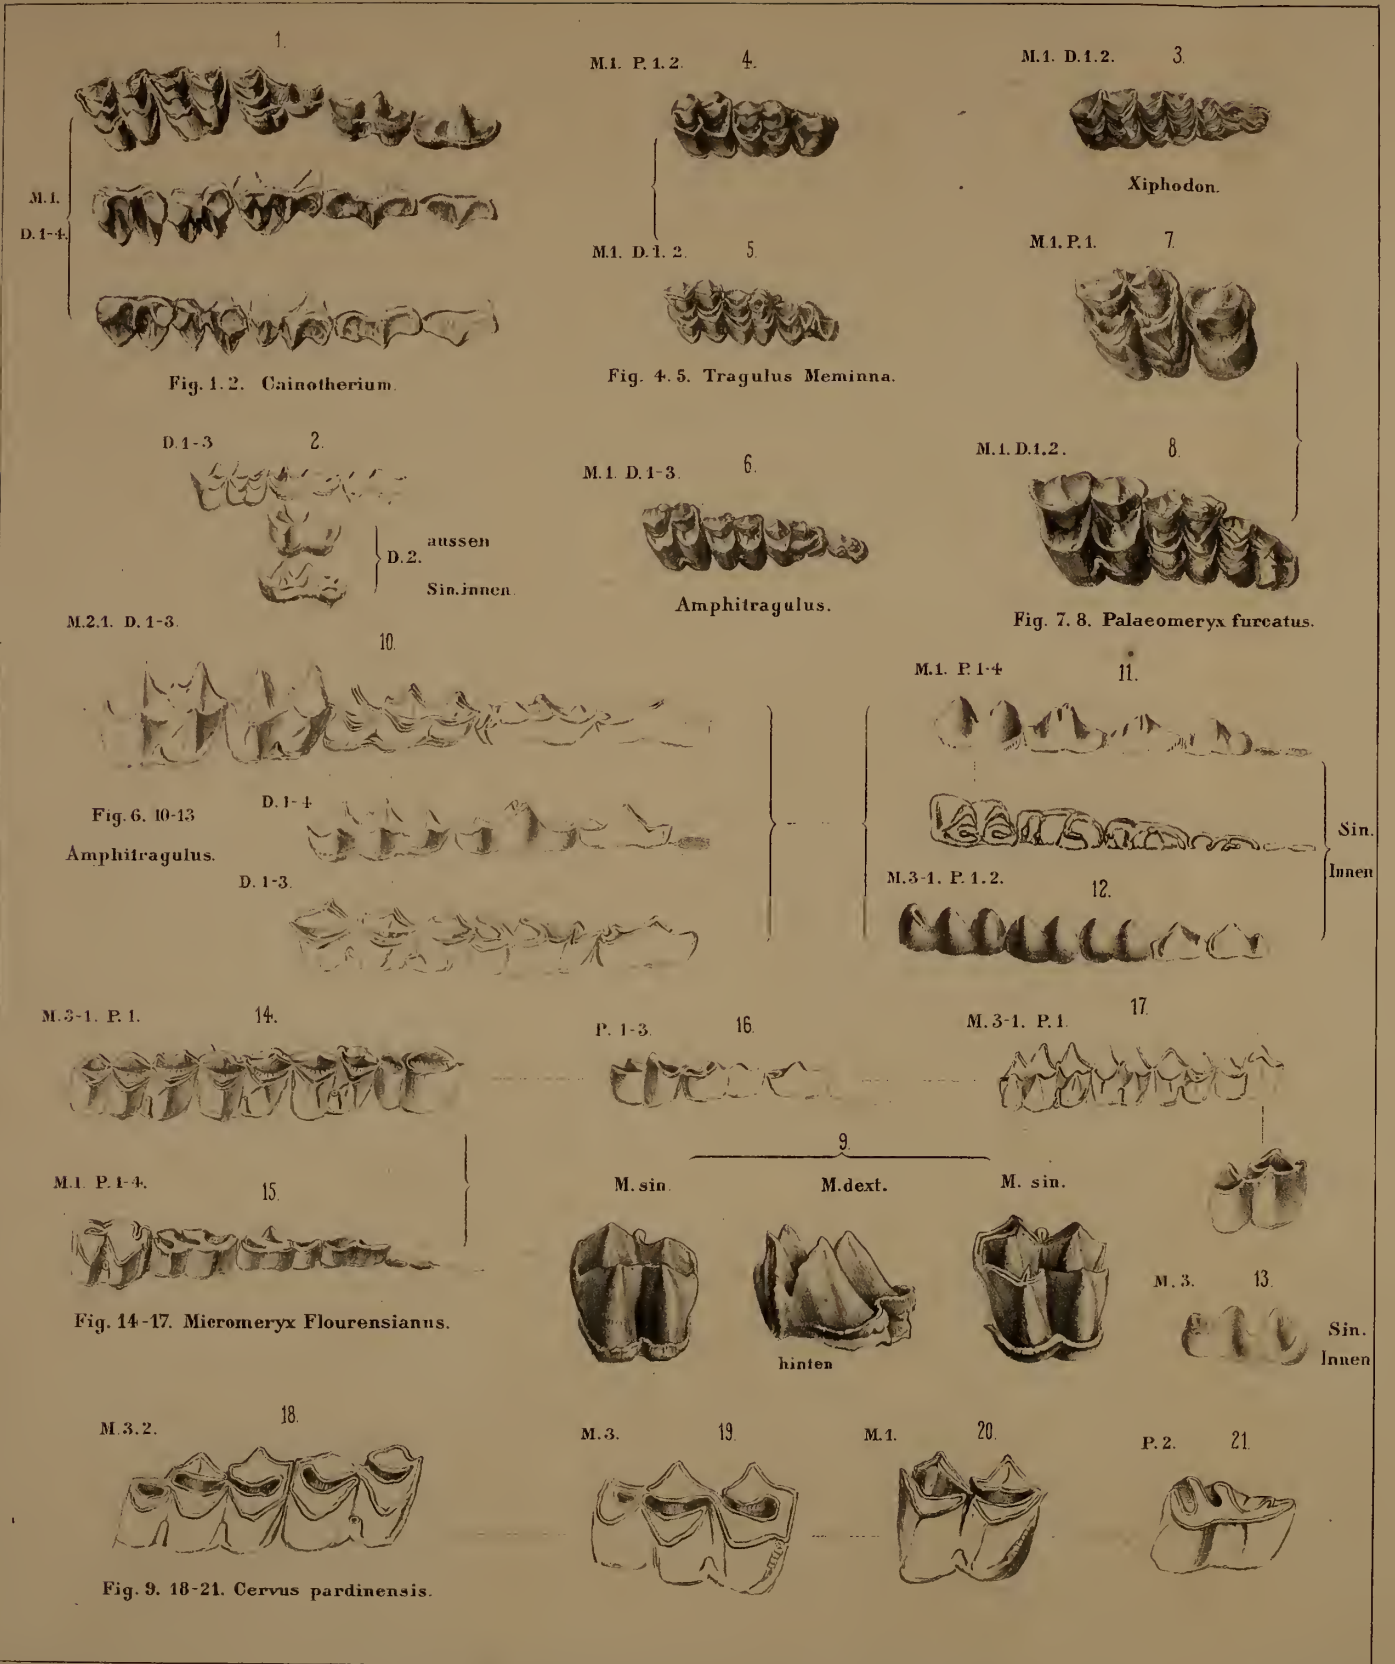 1.
M.1.
D.1-4.
Fig. 1. 2. Cainotherium.
M.1. P. 1. 2. 4.
M.1. D. 1. 2. 5.
Fig. 4. 5. Tragulus Meminna.
M.1. D.1.2. 3.
Xiphodon.
M.1. P. 1. 7.
M.1. D.1.2. 8.
Fig. 7. 8. Palaeomeryx furcatus.
D.1-3 2.
D.2.
aussen
Sin. innen.
M.1. D. 1-3. 6.
Amphitragulus.
M.2.1. D. 1-3.
10.
Fig. 6. 10-13
Amphitragulus.
D. 1-4
D. 1-3.
M.1. P. 1-4 11.
M.3-1. P. 1.2. 12.
Sin.
Innen
M.3-1. P. 1. 14.
M.1 P. 1-4. 15.
Fig. 14-17. Micromeryx Flourensianus.
P. 1-3. 16.
M.3-1. P. 1. 17.
9.
M. sin. M. dext. M. sin.
hinten
M. 3. 13.
Sin.
Innen
M.3.2. 18.
M.3. 19.
M.1. 20.
P.2. 21.
Fig. 9. 18-21. Cervus pardinensis.